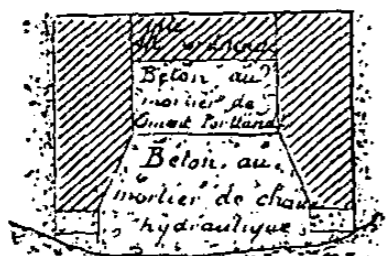 Béton au
mortier de
Ciment Portland
Béton au
mortier de chaux
hydraulique